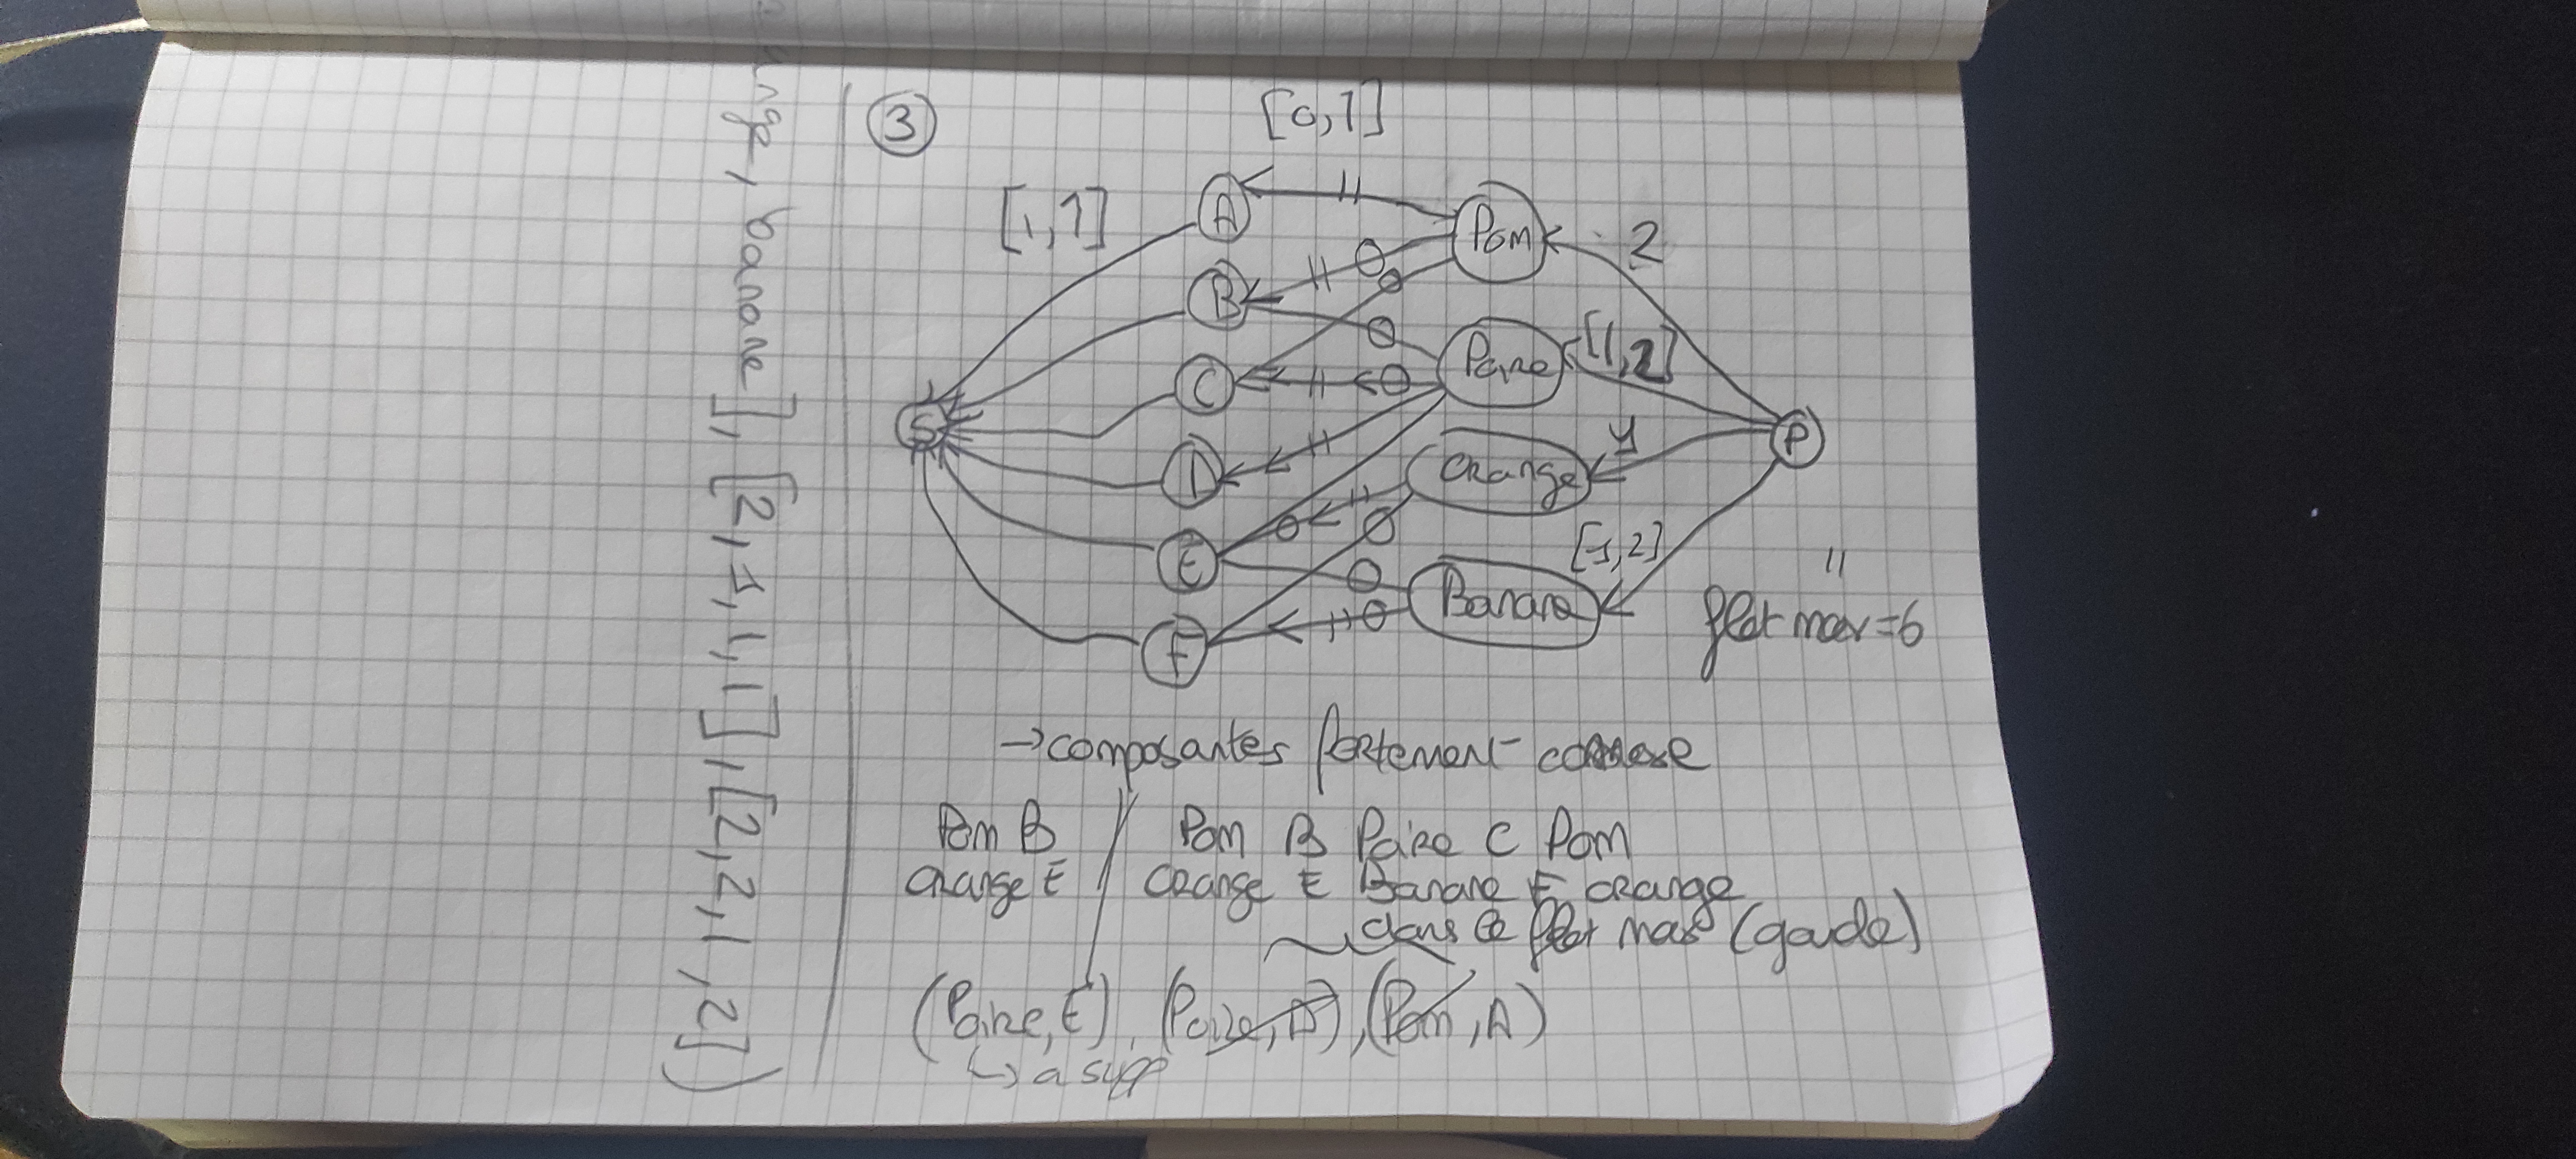 ange, banane], [2,1,1,1], [2,2,1,2])
③
[0,1]
[1,1]
A
Pom
2
B
Poire
[1,2]
C
S
P
D
Orange
1
E
[1,2]
Banane
F
flot max = 6
→ composantes fortement connexe
Pom B
Orange E
Pom B Poire C Pom
Orange E Banane F orange
dans le flot max (garde)
(Poire, E), (Poire, D), (Pom, A)
↳ a supp